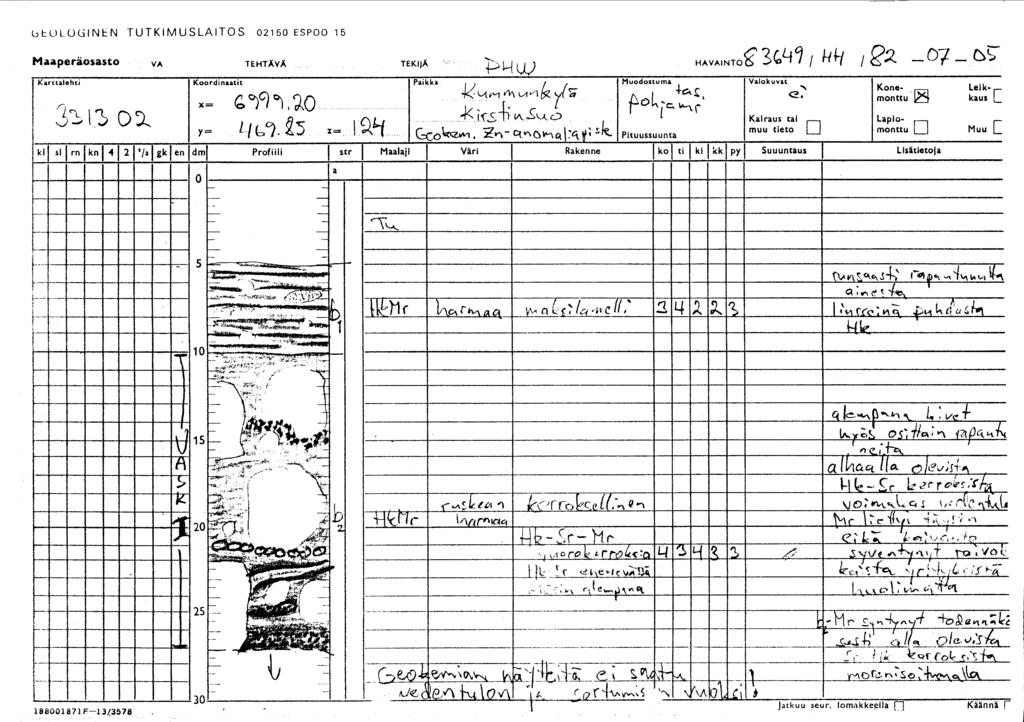 GEOLOGINEN TUTKIMUSLAITOS 02150 ESPOO 15
Maaperäosasto VA TEHTÄVÄ TEKIJÄ PHW HAVAINTO 83649, HH, 82-07-05
Karttalehti Koordinaatit Paikka Muodostuma Valokuvat Kone- Leik-
3313 02 x= 6979.20 Kummunkylä tas. ei monttu kaus
Kirstinsuo pohjamr
y= 469.85 z= 124 Geokem. Zn-anomaliapiste Pituussuunta Kairaus tai muu tieto Lapio-monttu Muu
kl sl rn kn 4 2 1/2 gk en dm Profiili str Maalaji Väri Rakenne ko ti ki kk py Suuuntaus Lisätietoja
a
0
Tu
5
runsaasti rapautunutta
ainesta
b1 HkMr harmaa 3 4 2 2 3 linsseinä puhdasta
Hk
10
alempana kivet
myös osittain rapautu
15 neita
VASK
alhaalla olevista
Hk-Sr kerroksista
ruskean kerroksellinen voimakas vedentulo
b2 HkMr harmaa Mr liettyi täysin
20
Hk-Sr-Mr eikä kaivanto
vuorokerroksia 4 3 4 3 3 syventynyt
Hk-Sr enenevässä
alempana huolimatta
25
b2-Mr syntynyt todennäkö
sesti alla olevista
Sr-Hk kerroksista
Geokemian näytteitä ei saatu moreenisoitumalla
vedentulon ja sortumis'n vuoksi!
30
188001871F-13/3578 Jatkuu seur. lomakkeella Käännä